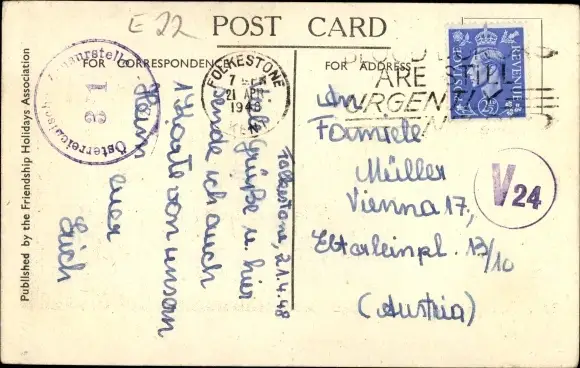 E 22
POST CARD
FOR CORRESPONDENCE
FOR ADDRESS
Published by the Friendship Holidays Association
Österreichische Zensurstelle
271
FOLKESTONE
21 APR
1948
KENT
ARE STILL
URGENTLY
POSTAGE
REVENUE
2½D
V24
Folkestone, 21.4.48
Viele Grüße v. hier
sende ich auch
1 Karte von unserm
Heim
euer
Erich
An
Familie
Müller
Vienna 17,
Elterleinpl. 13/10
(Austria)